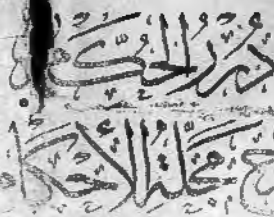 درر الحكام
ح مجلة الأحكام